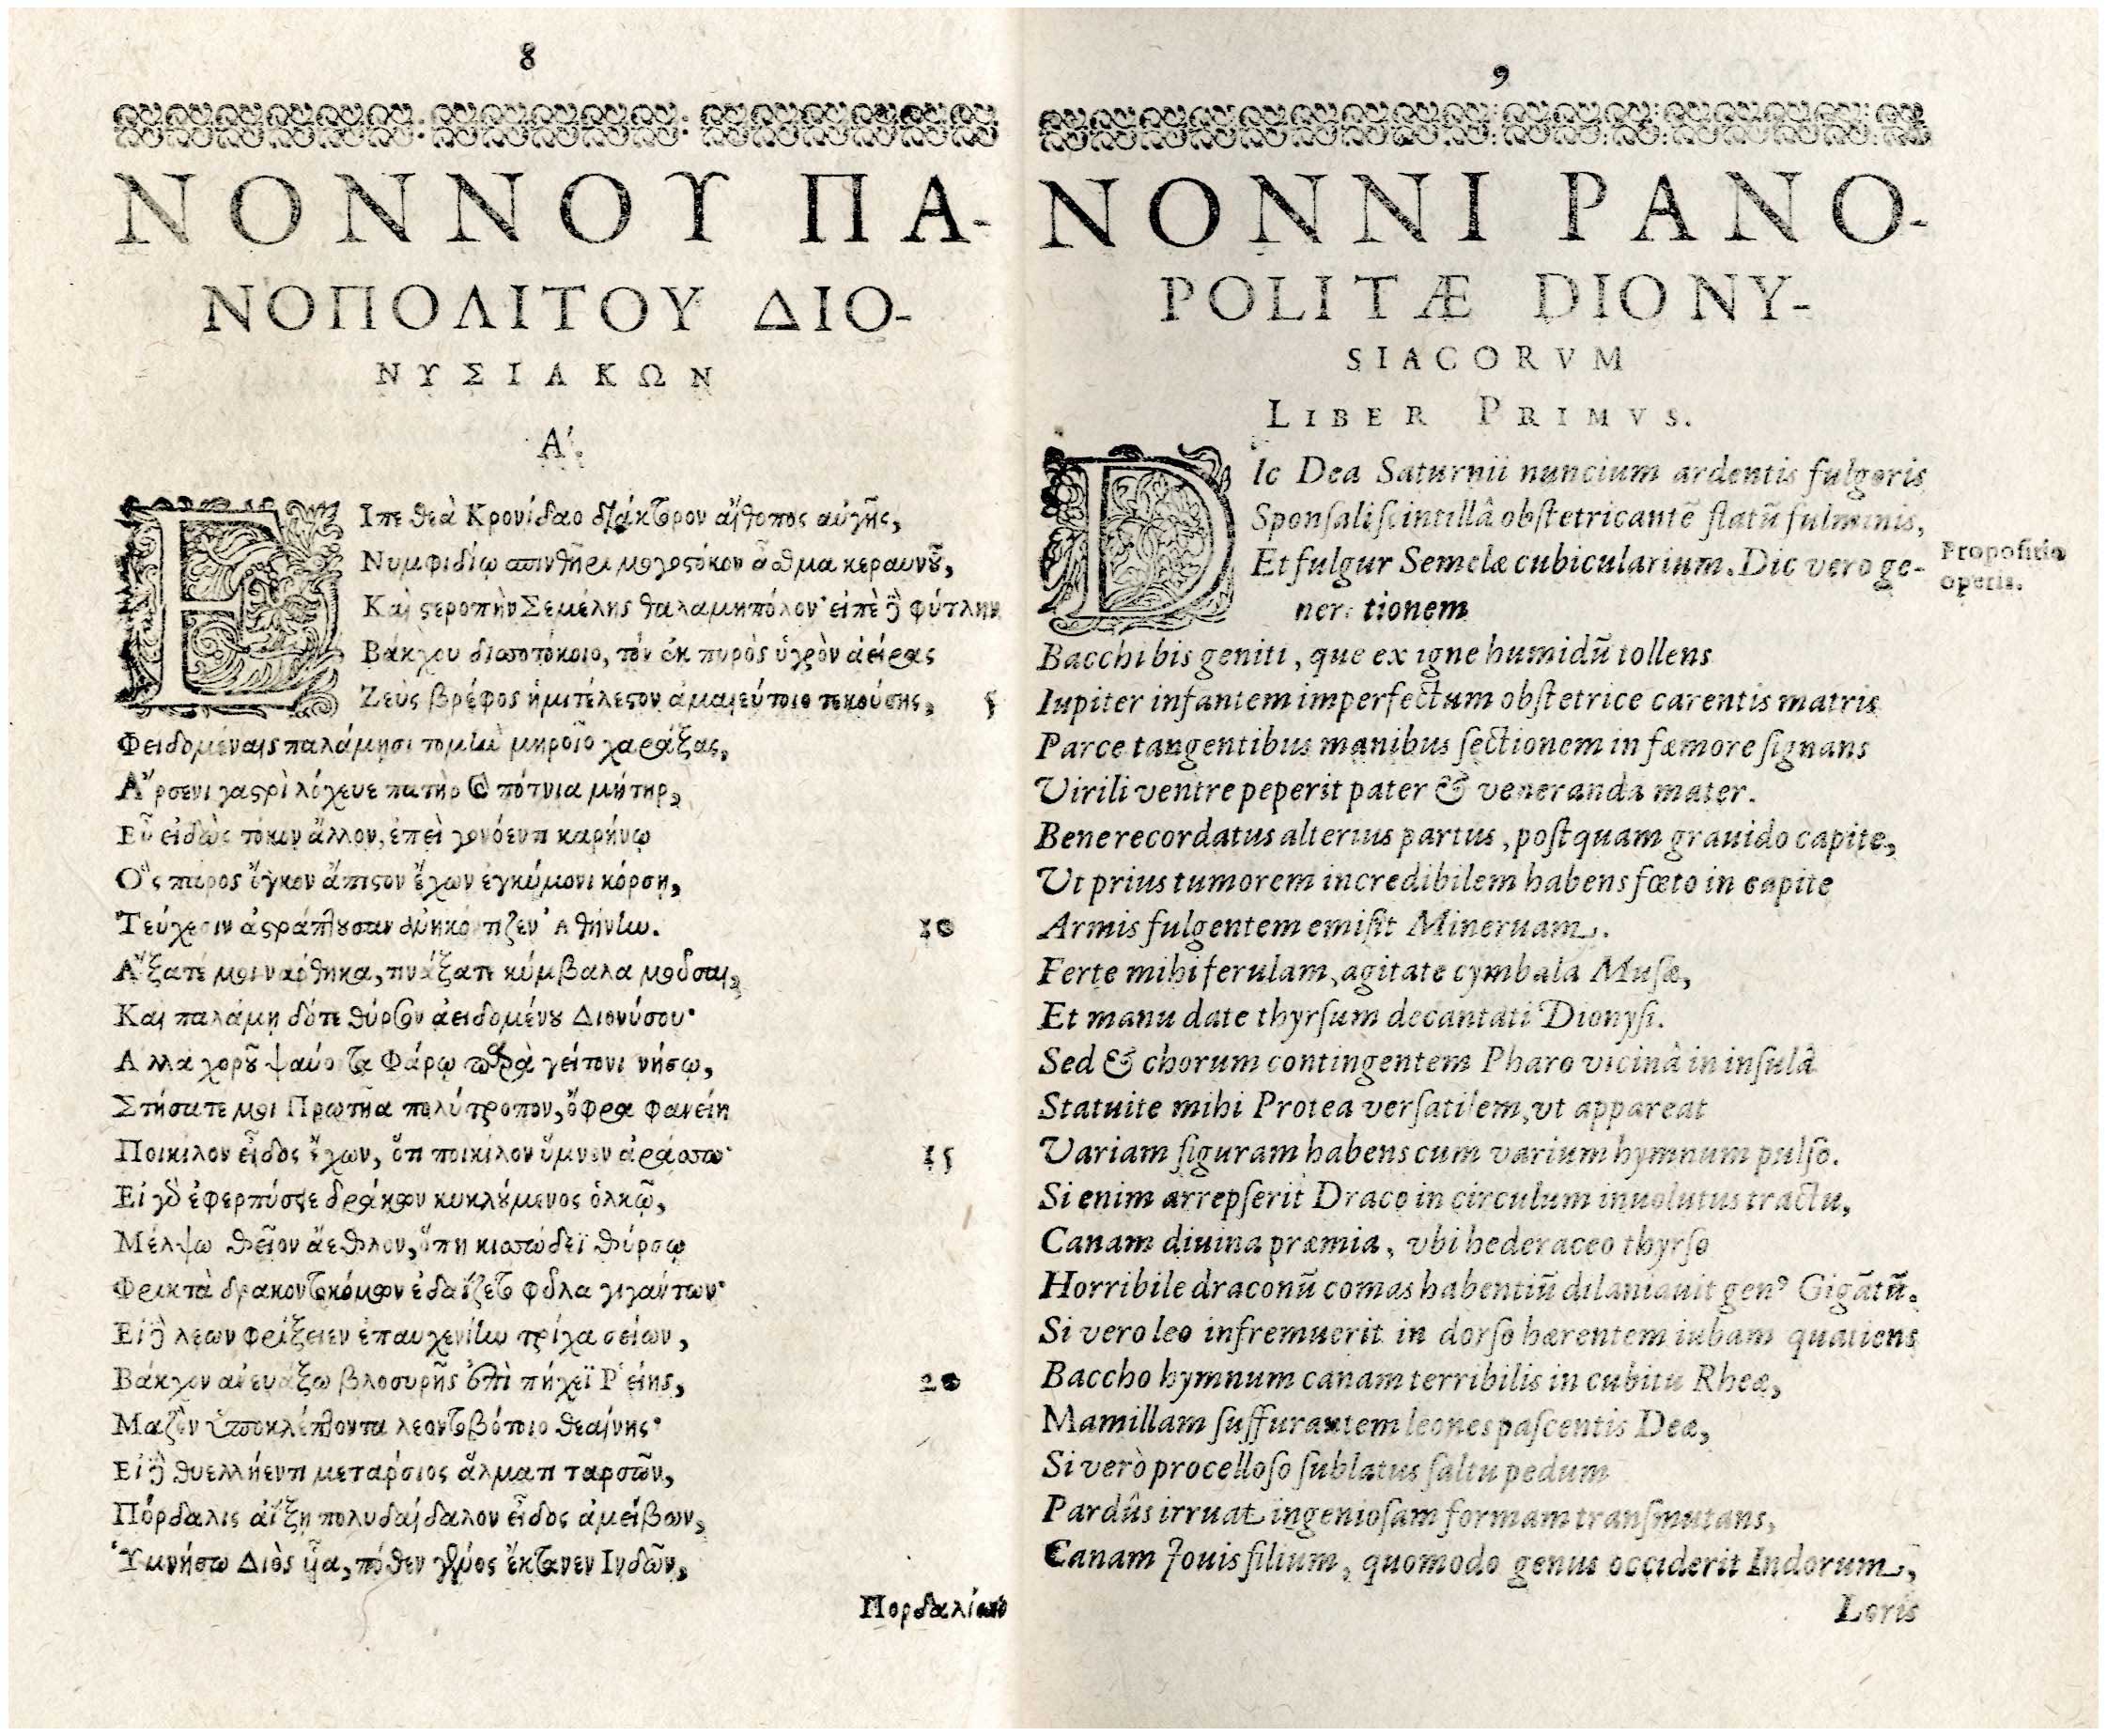 8
ΝΟΝΝΟΥ ΠΑ-
ΝΟΠΟΛΙΤΟΥ ΔΙΟ-
ΝΥΣΙΑΚΩΝ
Α΄.
ΕΙπε θεὰ Κρονίδαο διάκτορον αἴθοπος αὐγῆς,
Νυμφιδίῳ σπινθῆρι μογοστόκον ἆσθμα κεραυνοῦ,
Καὶ στεροπὴν Σεμέλης θαλαμηπόλον· εἰπὲ δὲ φύτλην
Βάκχου δισσοτόκοιο, τὸν ἐκ πυρὸς ὑγρὸν ἀείρας
Ζεὺς βρέφος ἡμιτέλεστον ἀμαιεύτοιο τεκούσης, 5
Φειδομέναις παλάμῃσι τομὴν μηροῖο χαράξας,
Ἄρσενι γαστρὶ λόχευε πατὴρ καὶ πότνια μήτηρ,
Εὖ εἰδὼς τόκον ἄλλον, ἐπεὶ γονόεντι καρήνῳ
Ὃς πάρος ὄγκον ἄπιστον ἔχων ἐγκύμονι κόρσῃ,
Τεύχεσιν ἀστράπτουσαν ἀνηκόντιζεν Ἀθήνην. 10
Ἄξατέ μοι νάρθηκα, τινάξατε κύμβαλα μοῦσαι,
Καὶ παλάμῃ δότε θύρσον ἀειδομένου Διονύσου·
Ἀλλὰ χοροῦ ψαύοντα Φάρῳ παρὰ γείτονι νήσῳ,
Στήσατε μοι Πρωτῆα πολύτροπον, ὄφρα φανείη
Ποικίλον εἶδος ἔχων, ὅτι ποικίλον ὕμνον ἀράσσω· 15
Εἰ γὰρ ἐφερπύσσειε δράκων κυκλούμενος ὁλκῷ,
Μέλψω θεῖον ἄεθλον, ὅπη κισσώδεϊ θύρσῳ
Φρικτὰ δρακοντοκόμων ἐδαΐζετο φῦλα γιγάντων·
Εἰ δὲ λέων φρίξειεν ἐπαυχενίην τρίχα σείων,
Βάκχον ἀνευάξω βλοσυρῆς ἐπὶ πήχεϊ Ῥείης, 20
Μαζὸν ὑποκλέπτοντα λεοντοβότοιο θεαίνης·
Εἰ δὲ θυελλήεντι μεταρσιος ἅλματι ταρσῶν,
Πόρδαλις ἀΐξῃ πολυδαίδαλον εἶδος ἀμείβων,
Ὑμνήσω Διὸς υἷα, πόθεν γένος ἔκτανεν Ἰνδῶν,
Πορδαλίων
9
NONNI PANO-
POLITÆ DIONY-
SIACORVM
LIBER PRIMVS.
DIc Dea Saturnii nuncium ardentis fulgoris
Sponſali ſcintillâ obſtetricantẽ flatũ fulminis,
Et fulgur Semelæ cubicularium. Dic vero ge-
nerationem
Propoſitio
operis.
Bacchi bis geniti, quẽ ex igne humidũ tollens
Iupiter infantem imperfectum obſtetrice carentis matris
Parce tangentibus manibus ſectionem in fœmore ſignans
Virili ventre peperit pater & veneranda mater.
Bene recordatus alterius partus, poſtquam grauido capite,
Vt prius tumorem incredibilem habens fœto in capite
Armis fulgentem emiſit Mineruam.
Ferte mihi ferulam, agitate cymbala Muſæ,
Et manu date thyrſum decantati Dionyſi.
Sed & chorum contingentem Pharo vicinâ in inſulâ
Statuite mihi Protea verſatilem, vt appareat
Variam figuram habens cum varium hymnum pulſo.
Si enim arrepſerit Draco in circulum inuolutus tractu,
Canam diuina præmia, vbi hederaceo thyrſo
Horribile draconũ comas habentiũ dilaniauit genꝰ Gigãtũ.
Si vero leo infremuerit in dorſo hærentem iubam quatiens
Baccho hymnum canam terribilis in cubitu Rheæ,
Mamillam ſuffurantem leones paſcentis Deæ,
Si verò procelloſo ſublatus ſaltu pedum
Pardus irruat ingenioſam formam tranſmutans,
Canam Jouis filium, quomodo genus occiderit Indorum,
Loris